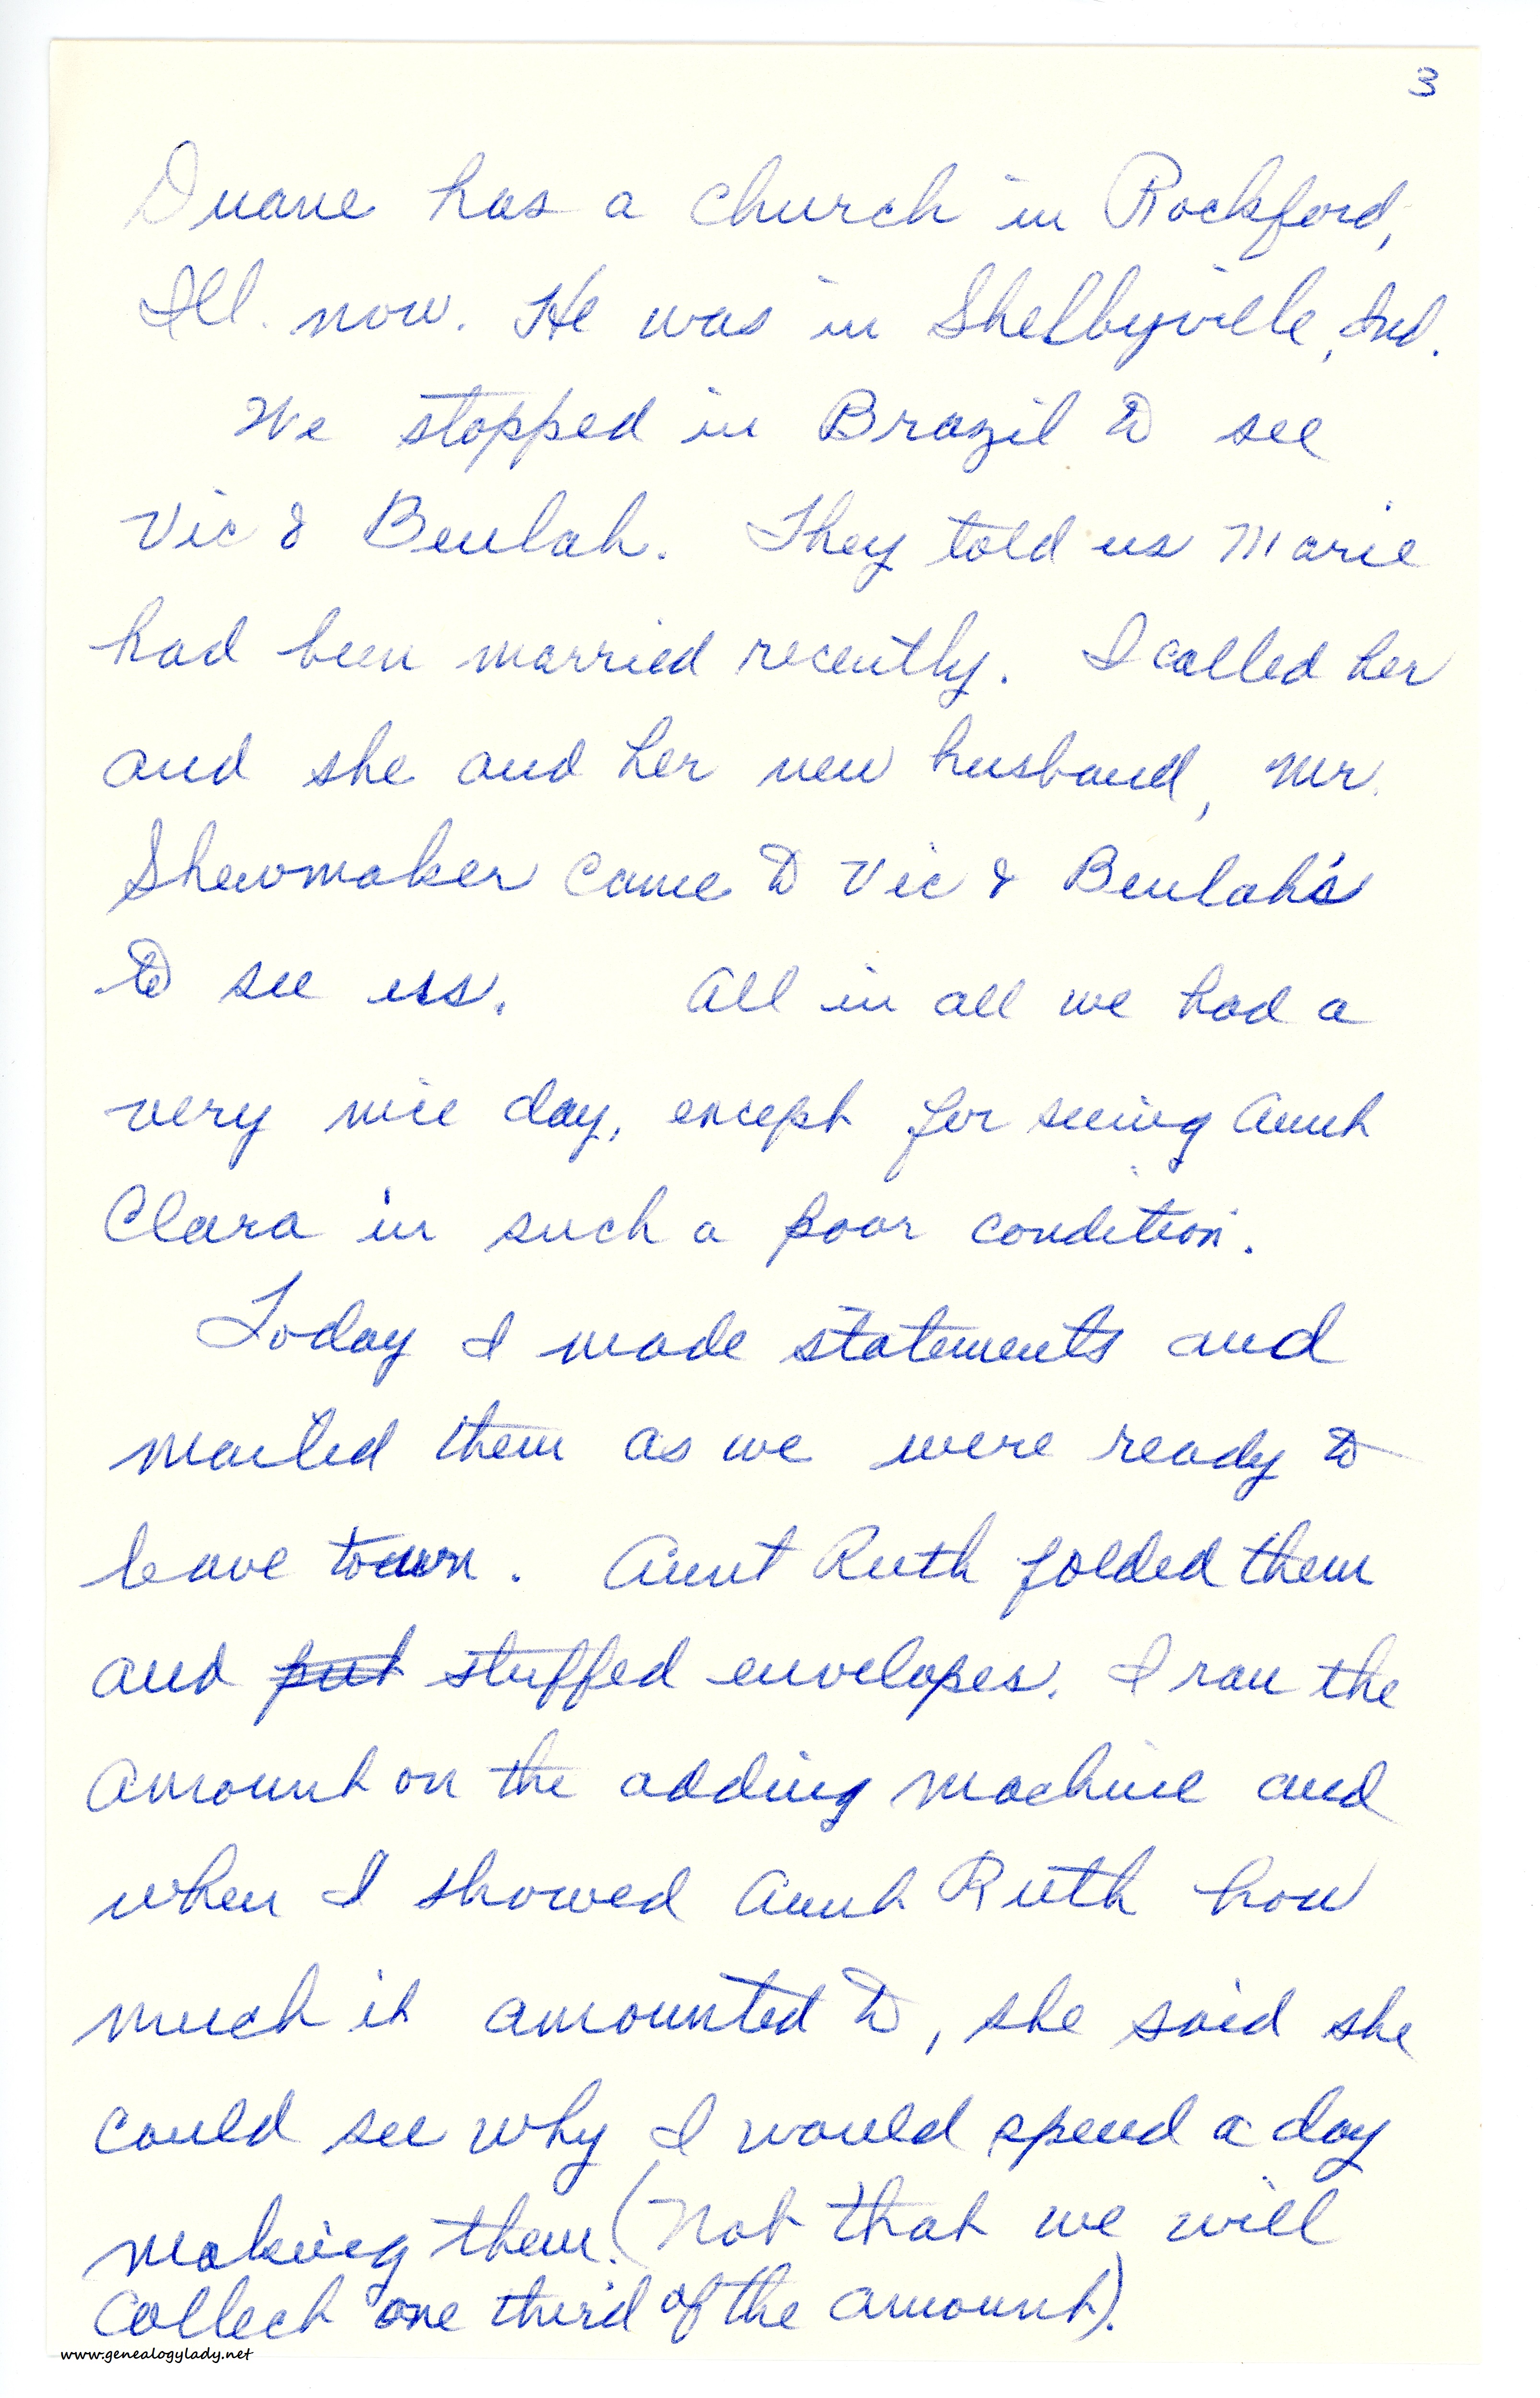 3
Duane has a church in Rockford,
Ill. now. He was in Shelbyville, Ind.
We stopped in Brazil to see
Vic & Beulah. They told us Marie
had been married recently. I called her
and she and her new husband, Mr.
Shewmaker came to Vic & Beulah's
to see us. All in all we had a
very nice day, except for seeing Aunt
Clara in such a poor condition.
Today I made statements and
mailed them as we were ready to
leave town. Aunt Ruth folded them
and put stuffed envelopes. I ran the
amount on the adding machine and
when I showed Aunt Ruth how
much it amounted to, she said she
could see why I would spend a day
making them. (Not that we will
collect one third of the amount).
www.genealogylady.net